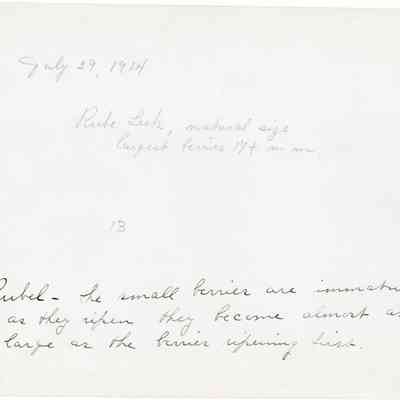 July 29, 1914
Rube Leek, natural size
largest berries 17+ m m.
13
Rubel - The small berries are immatu
as they ripen they become almost as
large as the berries ripening first.